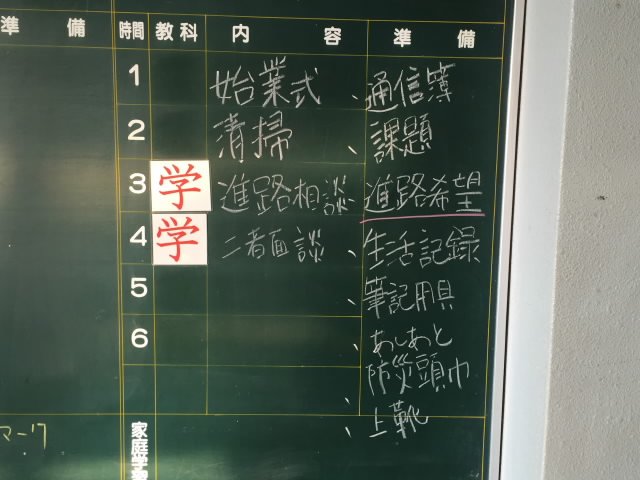 準 備 時間 教科 内 容 準 備
1 始業式 、通信簿
2 清掃 、課題
3 学 進路相談 進路希望
4 学 二者面談 、生活記録
5 、筆記用具
6 、あしあと
防災頭巾
、上靴
マーク
家庭学習